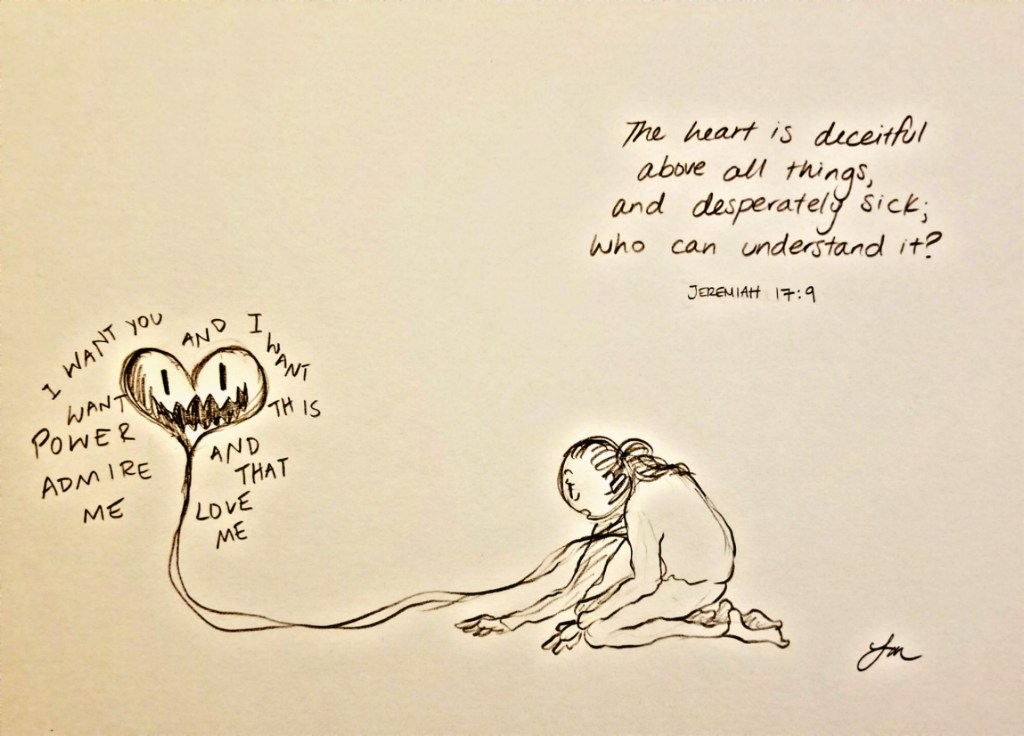 The heart is deceitful
above all things,
and desperately sick;
who can understand it?
JEREMIAH 17:9
I WANT YOU
AND I WANT
THIS
AND
THAT
LOVE
ME
WANT
POWER
ADMIRE
ME